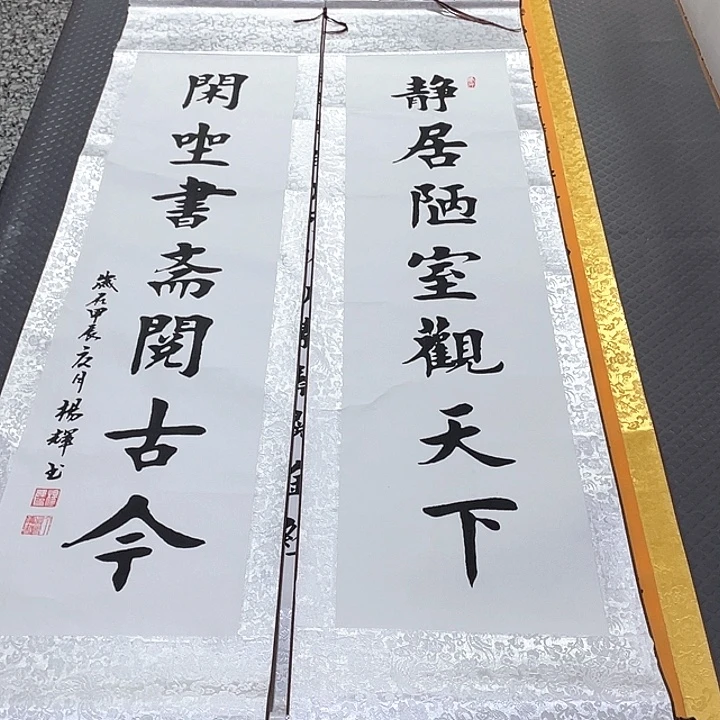 静居陋室觀天下
閑坐書斋閱古今
歲在甲辰之夏月楊輝书